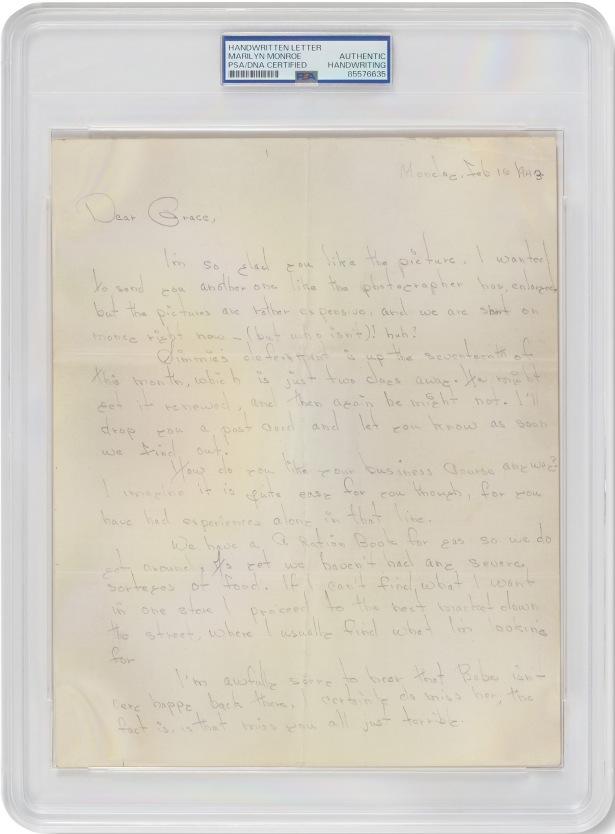 HANDWRITTEN LETTER
MARILYN MONROE AUTHENTIC
PSA/DNA CERTIFIED HANDWRITING
PSA 85576635
Monday, Feb 16
Dear Grace,
I'm so glad you like the picture. I wanted
to send you another one like the photographer has, enlarged
but the pictures are rather expensive, and we are short on
money right now — (but who isn't)! huh?
Jimmie's is up the seventeenth of
this month, which is just two days away. He might
get it renewed, and then again he might not. I'll
drop you a post card and let you know as soon
we find out.
How do you like your business course anyway?
I imagine it is quite easy for you though, for you
have had experiences along in that line.
We have a Ration Book for gas so we do
get around. As yet we haven't had any severe
of food. If I can't find what I want
in one store I proceed to the next market down
the street, where I usually find what I'm looking
for
I'm awfully sorry to hear that Bebe isn't
very happy back there, I certainly do miss her, the
fact is, is that miss you all just terrible.